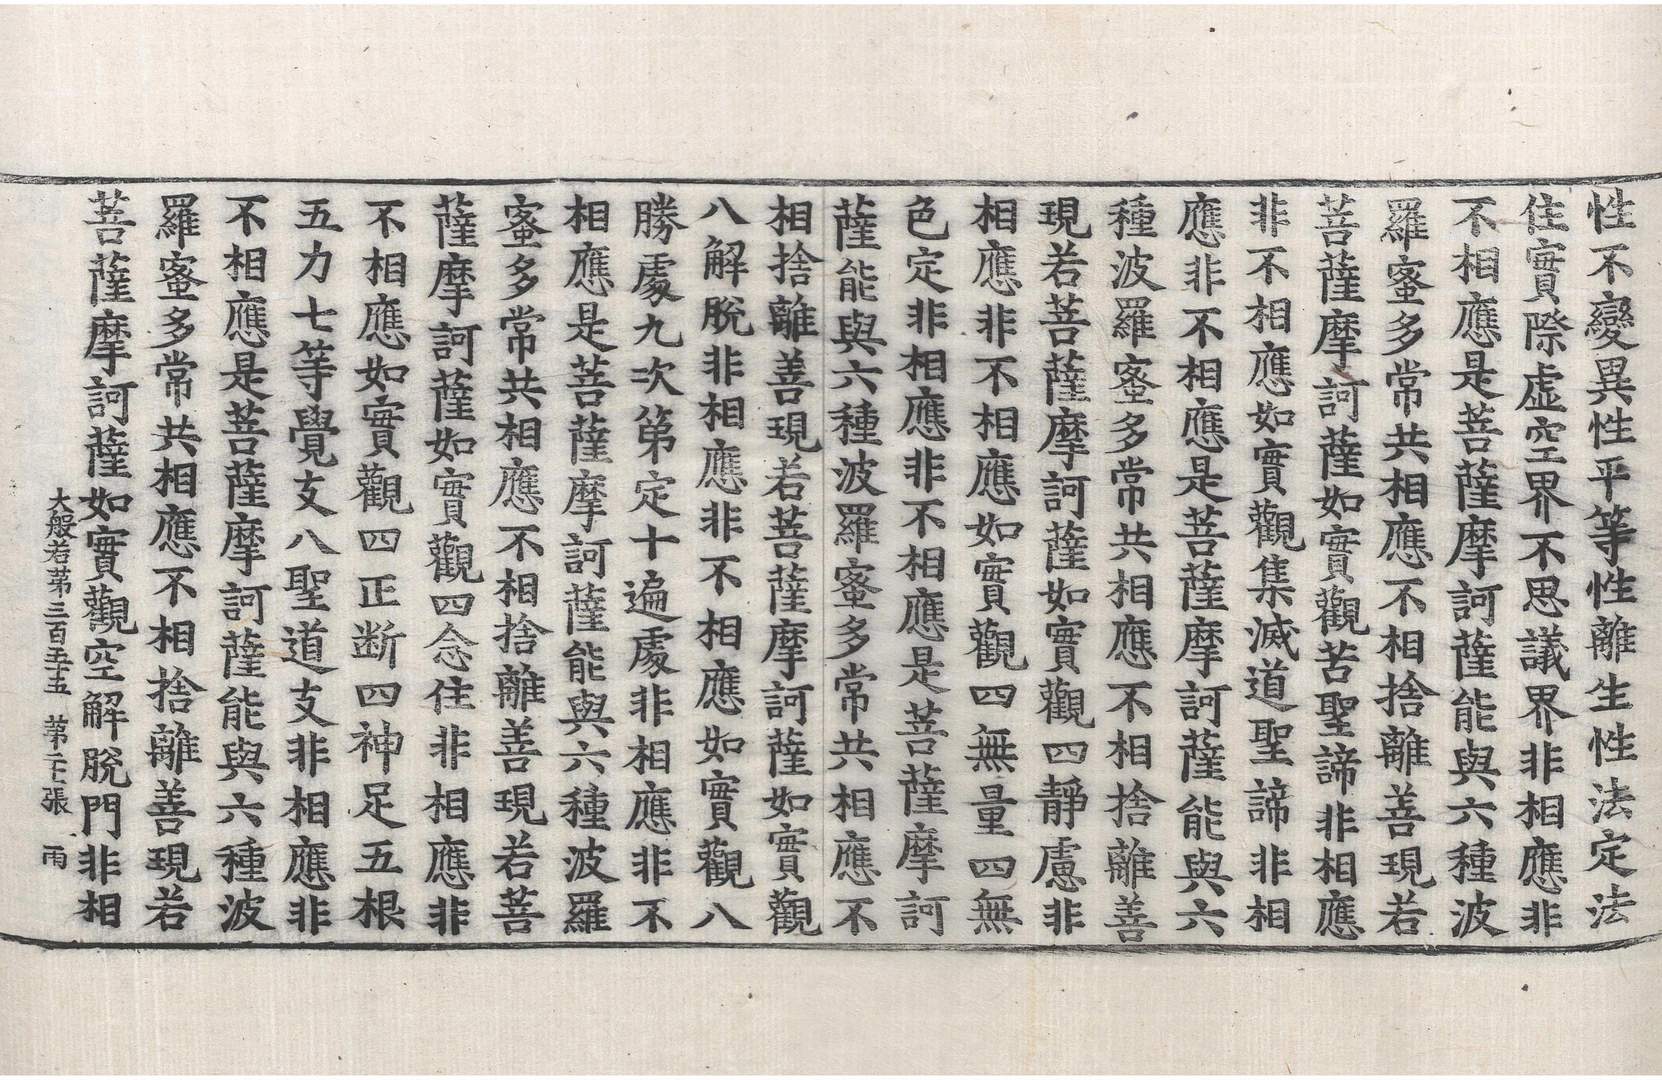 性不變異性平等性離生性法定法
住實際虛空界不思議界非相應非
不相應是菩薩摩訶薩能與六種波
羅蜜多常共相應不相捨離善現若
菩薩摩訶薩如實觀苦聖諦非相應
非不相應如實觀集滅道聖諦非相
應非不相應是菩薩摩訶薩能與六
種波羅蜜多常共相應不相捨離善
現若菩薩摩訶薩如實觀四靜慮非
相應非不相應如實觀四無量四無
色定非相應非不相應是菩薩摩訶
薩能與六種波羅蜜多常共相應不
相捨離善現若菩薩摩訶薩如實觀
八解脫非相應非不相應如實觀八
勝處九次第定十遍處非相應非不
相應是菩薩摩訶薩能與六種波羅
蜜多常共相應不相捨離善現若菩
薩摩訶薩如實觀四念住非相應非
不相應如實觀四正斷四神足五根
五力七等覺支八聖道支非相應非
不相應是菩薩摩訶薩能與六種波
羅蜜多常共相應不相捨離善現若
菩薩摩訶薩如實觀空解脫門非相
大般若第三百五十五 第二十張 雨